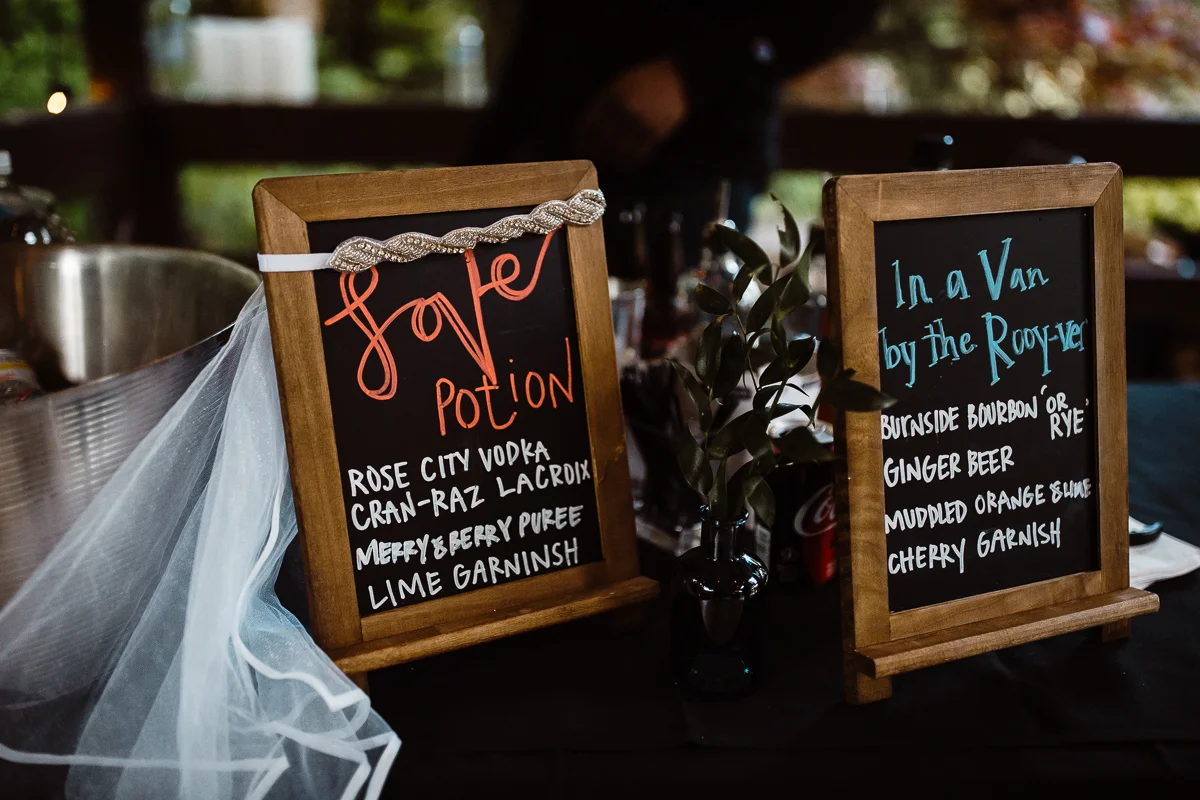 Love
POTION
ROSE CITY VODKA
CRAN-RAZ LACROIX
MERRY & BERRY PUREE
LIME GARNINSH
In a Van
by the Rooy-ver
BURNSIDE BOURBON 'OR RYE'
GINGER BEER
MUDDLED ORANGE & LIME
CHERRY GARNISH